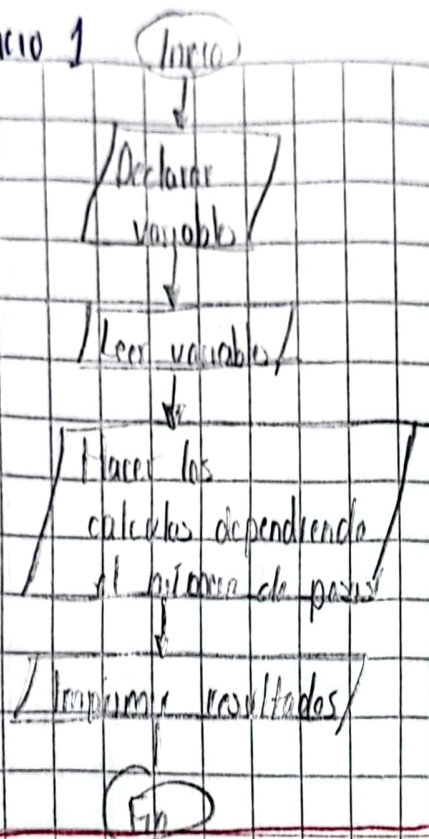 cio 1
Inicio
Declarar
variable
Leer variable
Hacer los
calculos dependiendo
el número de
Imprimir resultados
Fin